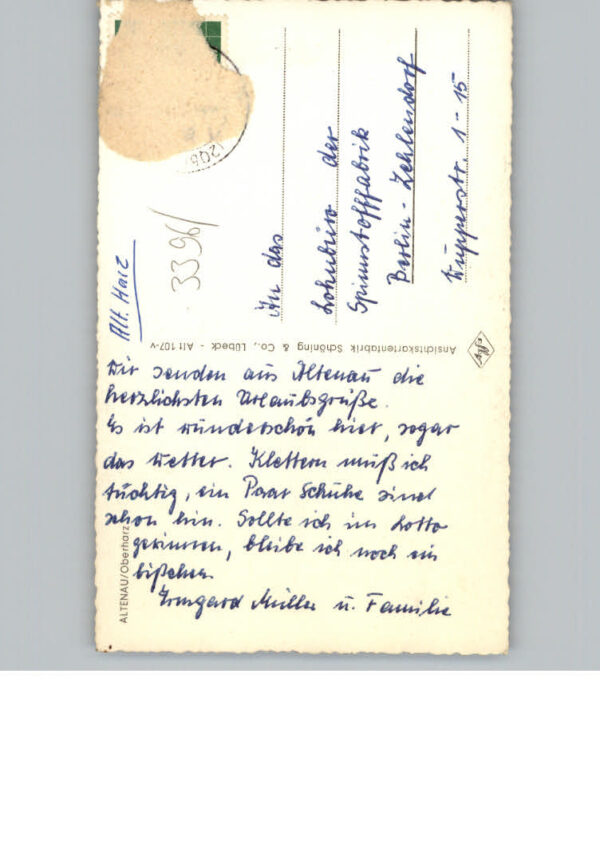 Alt. Harz
3396/
An das
Lohnbüro der
Spinnstofffabrik
Berlin-Zehlendorf
Wupperstr. 1-15
Ansichtskartenfabrik Schöning & Co., Lübeck - Alt 107-v
Wir senden aus Altenau die
herzlichsten Urlaubsgrüße.
Es ist wunderschön hier, sogar
das Wetter. Klettern muß ich
tüchtig, ein Paar Schuhe sind
schon hin. Sollte ich im Lotto
gewinnen, bleibe ich noch ein
bißchen.
Irmgard Müller u. Familie
ALTENAU/Oberharz